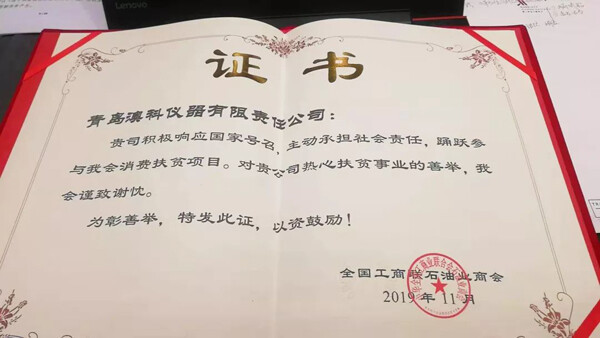 Lenovo
证书
青岛澳科仪器有限责任公司：
贵司积极响应国家号召，主动承担社会责任，踊跃参
与我会消费扶贫项目。对贵公司热心扶贫事业的善举，我
会谨致谢忱。
为彰善举，特发此证，以资鼓励！
全国工商联石油业商会
2019年11月